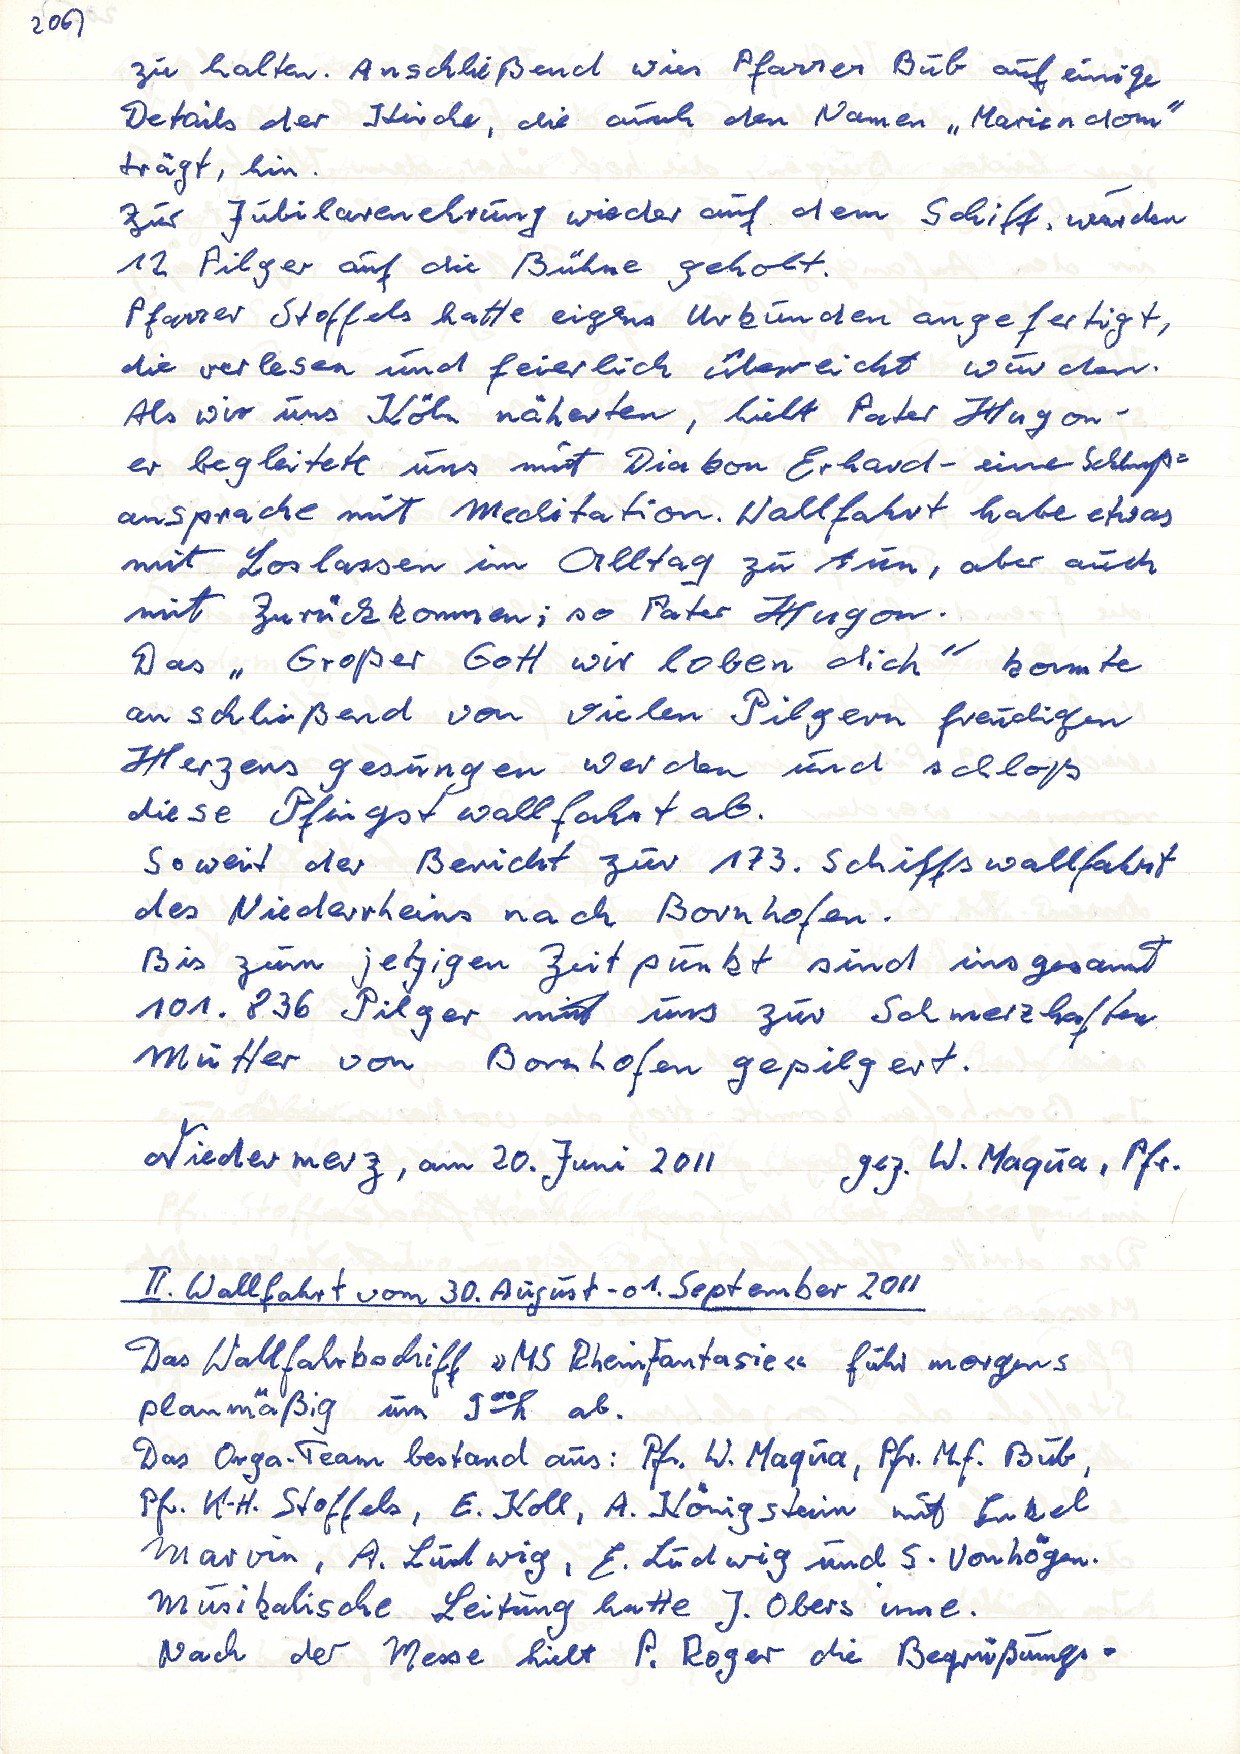 206)
zu halten. Anschließend wies Pfarrer Bub auf einige
Details der Kirche, die auch den Namen „Mariendom"
trägt, hin.
Zur Jubilarenehrung wieder auf dem Schiff, wurden
12 Pilger auf die Bühne geholt.
Pfarrer Stoffels hatte eigens Urkunden angefertigt,
die verlesen und feierlich überreicht wurden.
Als wir uns Köln näherten, hielt Pater Hugon -
er begleitete uns mit Diakon Erhard - eine Schluß=
ansprache mit Meditation. Wallfahrt habe etwas
mit Loslassen im Alltag zu tun, aber auch
mit Zurückkommen; so Pater Hugon.
Das „Großer Gott wir loben dich" konnte
anschließend von vielen Pilgern freudigen
Herzens gesungen werden und schloß
diese Pfingstwallfahrt ab.
Soweit der Bericht zur 173. Schiffswallfahrt
des Niederrheins nach Bornhofen.
Bis zum jetzigen Zeitpunkt sind insgesamt
101.836 Pilger mit uns zur Schmerzhaften
Mutter von Bornhofen gepilgert.
Niedermerz, am 20. Juni 2011 gez. W. Maqua, Pfr.
II. Wallfahrt vom 30. August - 01. September 2011
Das Wallfahrtsschiff »MS RheinFantasie« fuhr morgens
planmäßig um 9⁰⁰h ab.
Das Orga-Team bestand aus: Pfr. W. Maqua, Pfr. M.f. Bub,
Pfr. K-H. Stoffels, E. Koll, A. Königstein mit Enkel
Marvin, A. Ludwig, E. Ludwig und S. Vonhögen.
Musikalische Leitung hatte J. Obers inne.
Nach der Messe hielt P. Roger die Begrüßungs-